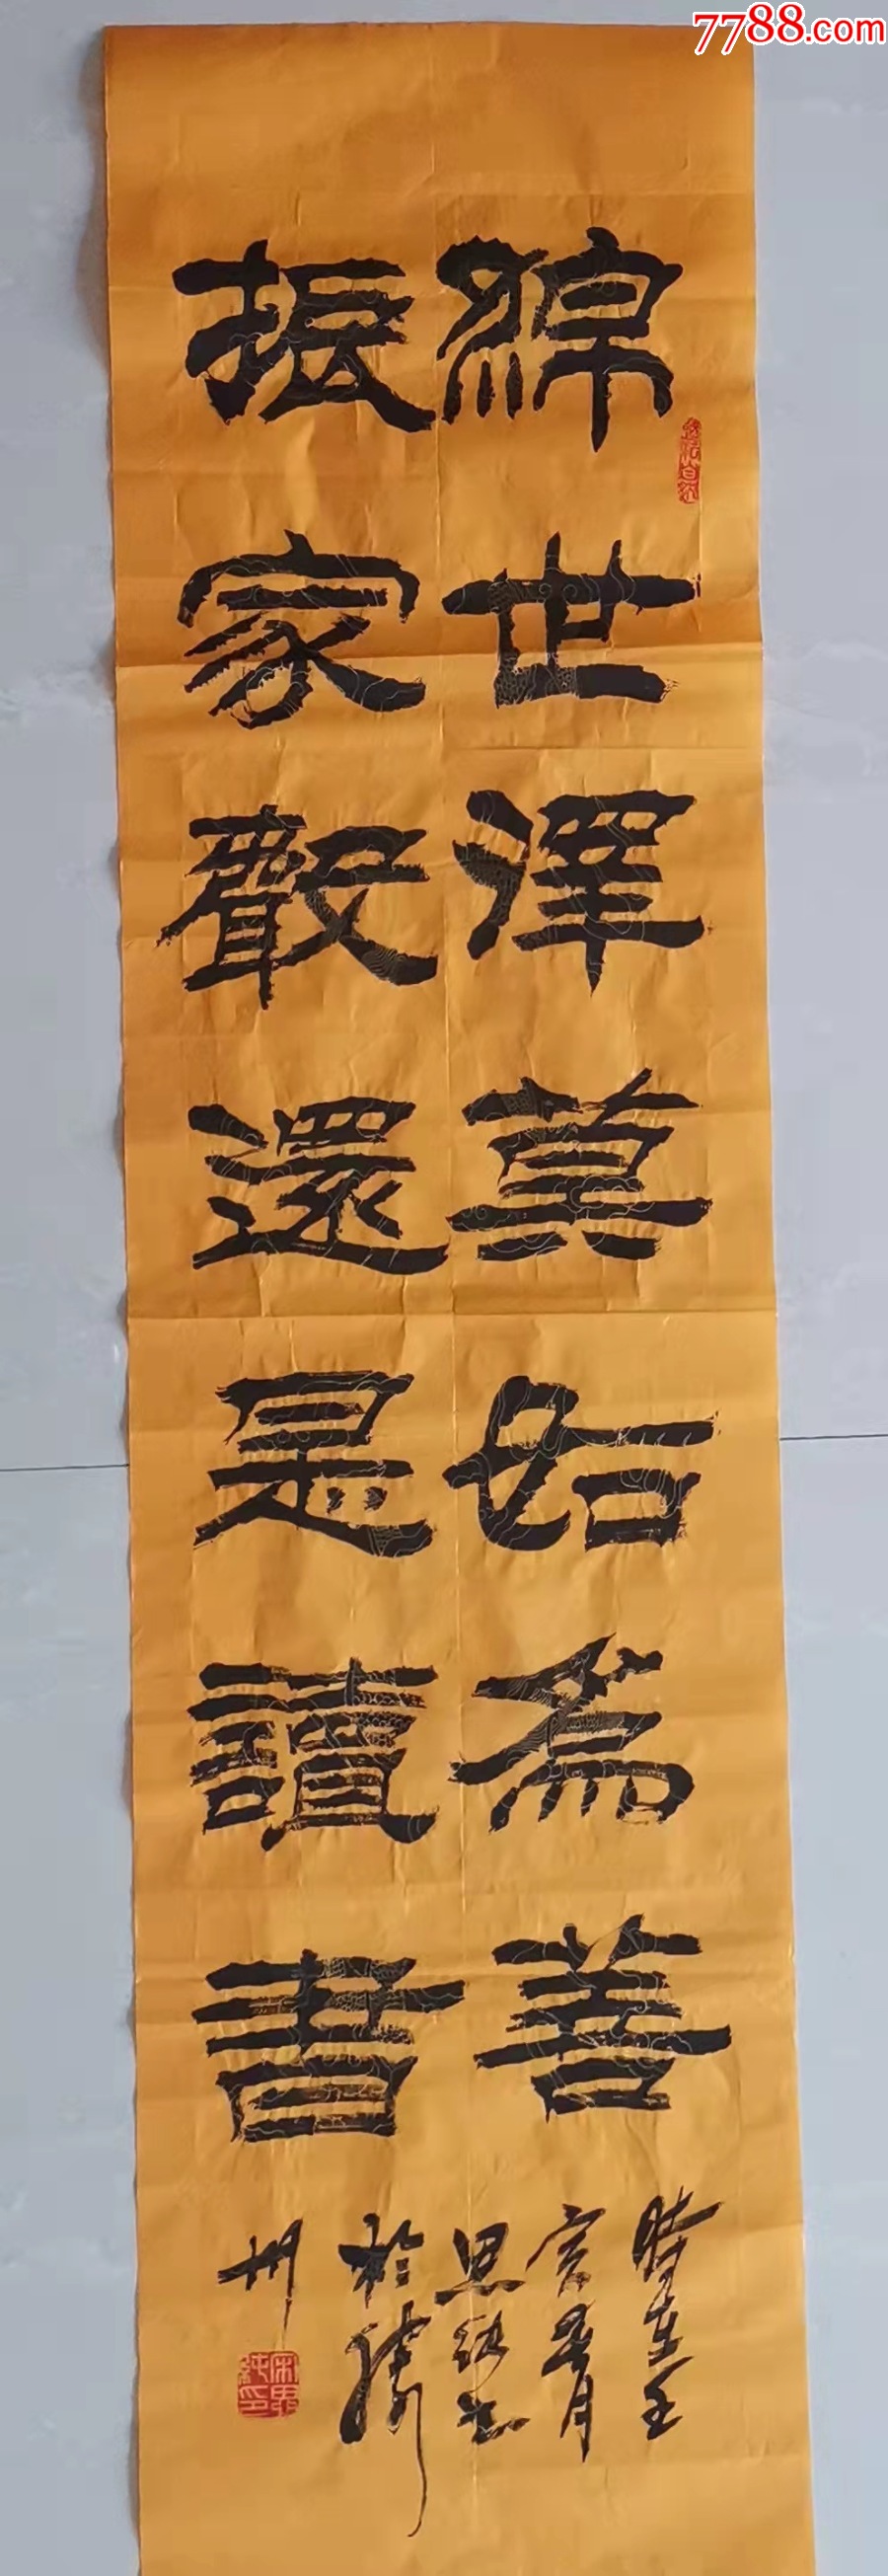 7788.com
綿世澤莫如為善
振家聲還是讀書
時在壬
寅春月
思純書
於滕
州